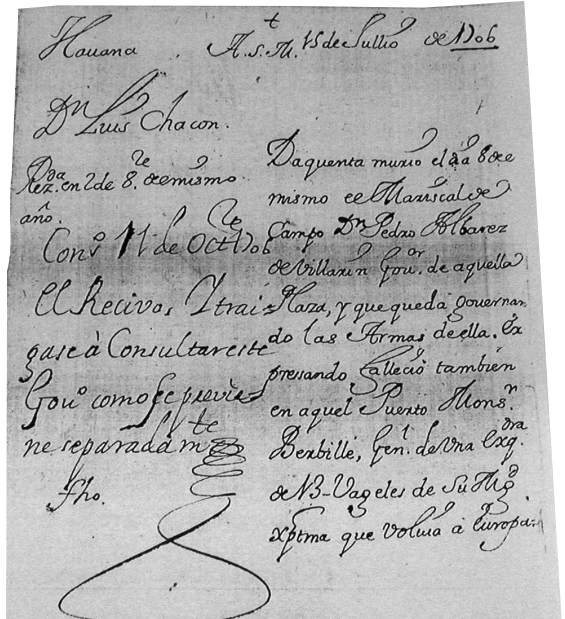 Havana A. S. M. 15 de Jullio de 1706
Dn Luis Chacon.
Rezda en 2 de 8.re de mismo
año.
Conso 11 de Octre 1706
El Recivo, Y trai
gase à Consultar este
Govo como se previe
ne separadamte
fho.
Da quenta murio el dia 8 de e
mismo ee Mariscal de
Campo Dn Pedro Albarez
de Villarin Gouor de aquella
Plaza, y que queda governan
do las Armas de ella. ex
pressando falleció tambien
en aquel Puerto Monsn.
Berbille, Genl de vna exqdra
de Vageles de Su Mgd
xptma que volvia à Europa.